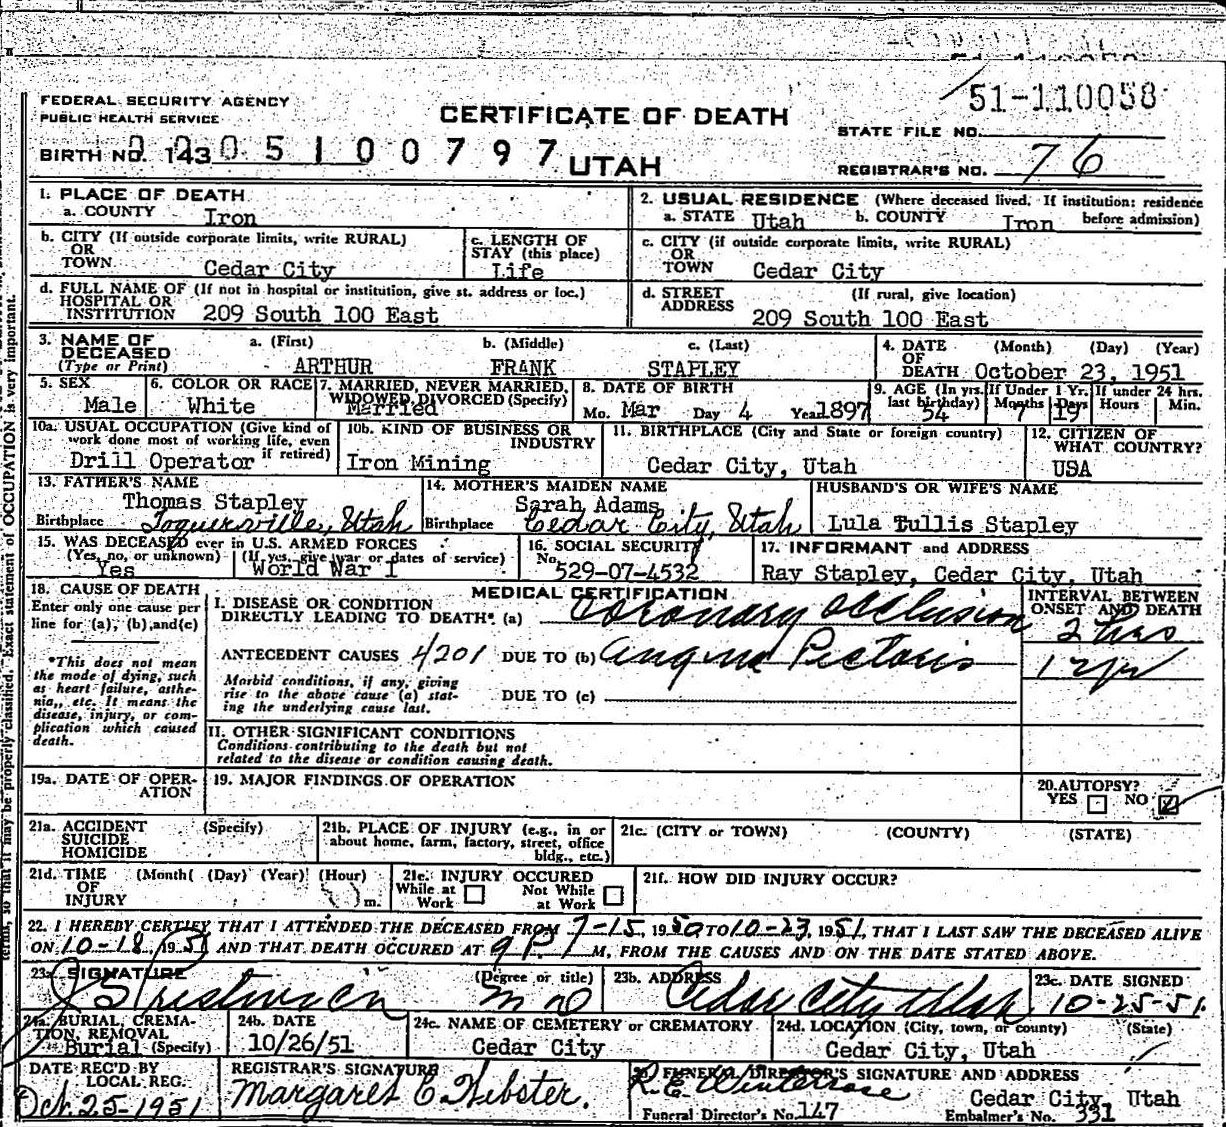 51-110058
FEDERAL SECURITY AGENCY
PUBLIC HEALTH SERVICE
CERTIFICATE OF DEATH
STATE FILE NO.
BIRTH NO. 143 0 5 1 0 0 7 9 7 UTAH
REGISTRAR'S NO. 76
1. PLACE OF DEATH
a. COUNTY Iron
2. USUAL RESIDENCE (Where deceased lived. If institution: residence before admission)
a. STATE Utah b. COUNTY Iron
b. CITY (If outside corporate limits, write RURAL)
OR
TOWN Cedar City
c. LENGTH OF
STAY (this place)
Life
c. CITY (if outside corporate limits, write RURAL)
OR
TOWN Cedar City
d. FULL NAME OF (If not in hospital or institution, give st. address or loc.)
HOSPITAL OR
INSTITUTION 209 South 100 East
d. STREET (If rural, give location)
ADDRESS
209 South 100 East
3. NAME OF DECEASED
(Type or Print)
a. (First) b. (Middle) c. (Last)
ARTHUR FRANK STAPLEY
4. DATE (Month) (Day) (Year)
OF
DEATH October 23, 1951
5. SEX
Male
6. COLOR OR RACE
White
7. MARRIED, NEVER MARRIED,
WIDOWED, DIVORCED (Specify)
Married
8. DATE OF BIRTH
Mo. Mar Day 4 Year 1897
9. AGE (In yrs. last birthday) 54
If Under 1 Yr. Months 7 Days 19
If under 24 hrs. Hours Min.
10a. USUAL OCCUPATION (Give kind of
work done most of working life, even
if retired)
Drill Operator
10b. KIND OF BUSINESS OR
INDUSTRY
Iron Mining
11. BIRTHPLACE (City and State or foreign country)
Cedar City, Utah
12. CITIZEN OF
WHAT COUNTRY?
USA
13. FATHER'S NAME
Thomas Stapley
Birthplace Toquerville, Utah
14. MOTHER'S MAIDEN NAME
Sarah Adams
Birthplace Cedar City, Utah
HUSBAND'S OR WIFE'S NAME
Lula Tullis Stapley
15. WAS DECEASED ever in U.S. ARMED FORCES
(Yes, no, or unknown) (If yes, give war or dates of service)
Yes World War I
16. SOCIAL SECURITY
No. 529-07-4532
17. INFORMANT and ADDRESS
Ray Stapley, Cedar City, Utah
18. CAUSE OF DEATH
Enter only one cause per
line for (a), (b), and (c)
*This does not mean
the mode of dying, such
as heart failure, asthe-
nia,, etc. It means the
disease, injury, or com-
plication which caused
death.
MEDICAL CERTIFICATION
I. DISEASE OR CONDITION
DIRECTLY LEADING TO DEATH* (a) Coronary occlusion
ANTECEDENT CAUSES 4201 DUE TO (b) Angina Pectoris
Morbid conditions, if any, giving
rise to the above cause (a) stat-
ing the underlying cause last.
DUE TO (c)
INTERVAL BETWEEN
ONSET AND DEATH
2 hrs
1 yr
II. OTHER SIGNIFICANT CONDITIONS
Conditions contributing to the death but not
related to the disease or condition causing death.
19a. DATE OF OPER-
ATION
19. MAJOR FINDINGS OF OPERATION
20. AUTOPSY?
YES NO
21a. ACCIDENT (Specify)
SUICIDE
HOMICIDE
21b. PLACE OF INJURY (e.g., in or
about home, farm, factory, street, office
bldg., etc.)
21c. (CITY or TOWN) (COUNTY) (STATE)
21d. TIME (Month( (Day) (Year) (Hour)
OF
INJURY m.
21e. INJURY OCCURED
While at Work Not While at Work
21f. HOW DID INJURY OCCUR?
22. I HEREBY CERTIFY THAT I ATTENDED THE DECEASED FROM 7-15, 1950 TO 10-23, 1951, THAT I LAST SAW THE DECEASED ALIVE
ON 10-18, 1951 AND THAT DEATH OCCURED AT 9 P M, FROM THE CAUSES AND ON THE DATE STATED ABOVE.
23a. SIGNATURE (Degree or title)
M D
23b. ADDRESS
Cedar City Utah
23c. DATE SIGNED
10-25-51
24a. BURIAL, CREMA-
TION, REMOVAL
Burial (Specify)
24b. DATE
10/26/51
24c. NAME OF CEMETERY or CREMATORY
Cedar City
24d. LOCATION (City, town, or county) (State)
Cedar City, Utah
DATE REC'D BY
LOCAL REG.
Oct. 25-1951
REGISTRAR'S SIGNATURE
Margaret C Webster.
25. FUNERAL DIRECTOR'S SIGNATURE AND ADDRESS
R.E. Winterrose
Cedar City, Utah
Funeral Director's No. 147 Embalmer's No. 331
terms, so that it may be properly classified. Exact statement of OCCUPATION is very important.